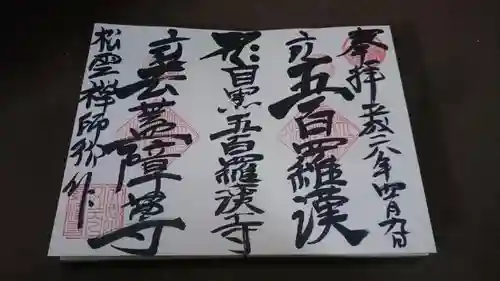 奉拝 平成二八年四月九日
五百羅漢
目黒五百羅漢寺
去蓋障尊
松雲禅師